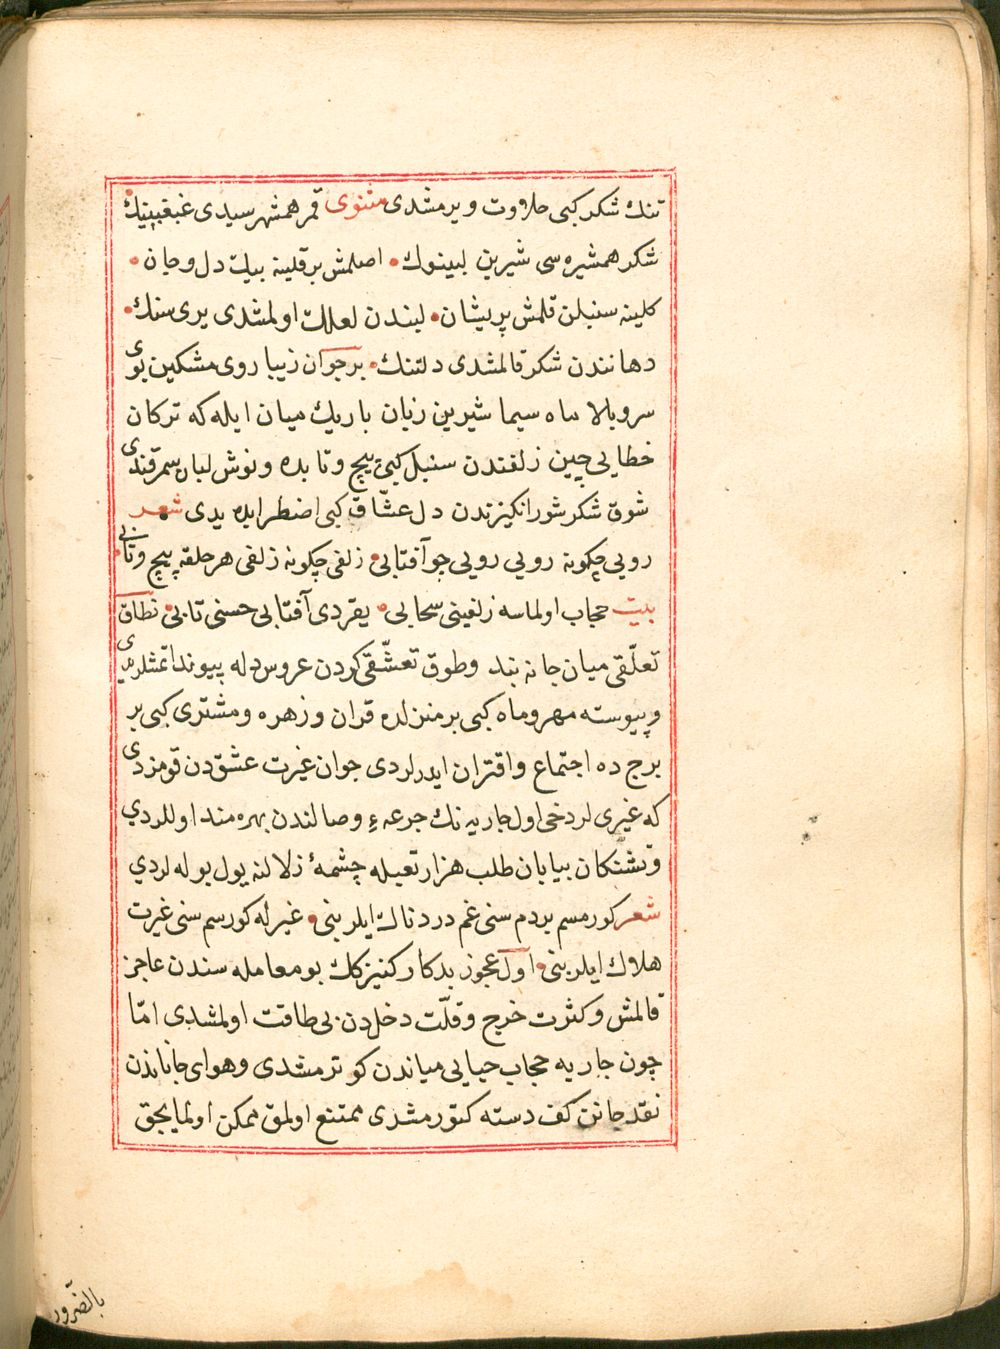 تنك شكر كبى حلاوت ويرمشدى مثنوى قمر همشهرسيدى غبغبينك
شكر همشيره سى شيرين لبينوك • اصلمش بر قلينه بيك دل و جان •
كلينه سنبلن قلمش پريشان • لبندن لعلك اولمشدى يرى سنك •
دهانندن شكر قالمشدى دلتنك • بر جوان زيبا روى مشكين بوى
سرو بالا ماه سيما شيرين زبان باريك ميان ايله كه تركان
خطايى چين زلفندن سنبل كبى پيچ و تابده و نوش لبان سمرقندى
شوق شكر شور انكيزندن دل عشّاق كبى اضطرابده يدى شعر
رويى چكونه رويى رويى جو آفتابى • زلفى چكونه زلفى هر حلقه پيچ و تابى •
بيت حجاب اولماسه زلفينى سحابى • يقردى آفتابى حسنى تابى • نطاق
تعلّقى ميان جانه بند و طوق تعشّقى كردن عروس دله پيوند اتمشلردى
و پيوسته مهر و ماه كبى بر منزلده قران و زهره و مشترى كبى بر
برج ده اجتماع و اقتران ايدرلردى جوان غيرت عشق دن قومزدى
كه غيرى لر دخى اول جاريه نك جرعهٔ وصالندن بهره مند اوللردي
و تشنكان بيابان طلب هزار تعبله چشمهٔ زلالنه يول بوله لردي
شعر كورمسم بردم سنى غم دردناك ايلر بنى • غيرله كورسم سنى غيرت
هلاك ايلر بنى • اول عجوز بدكار كنيزكك بو معامله سندن عاجز
قالمش و كثرت خرج و قلّت دخلدن بى طاقت اولمشدى امّا
چون جاريه حجاب حيايى مياندن كوترمشدى و هواى جاناندن
نقد جانن كف دسته كتورمشدى ممتنع اولمق ممكن اولمايجق
بالضّرور